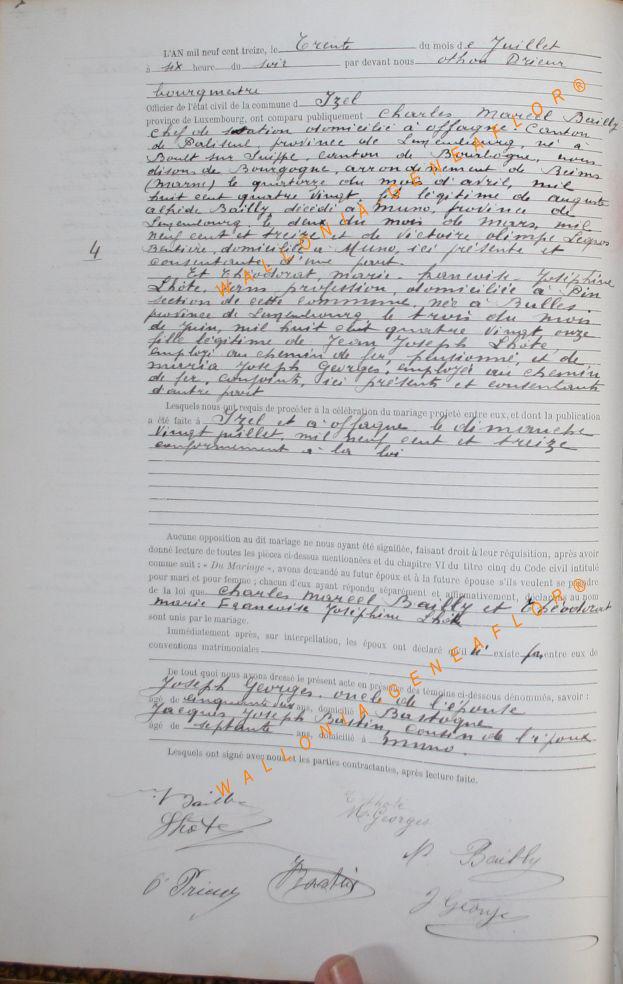 L'AN mil neuf cent treize, le Trente du mois de Juillet
à six heure du soir par devant nous Othon Prieur
bourgmestre
Officier de l'état civil de la commune d Izel
province de Luxembourg, ont comparu publiquement Charles Marcel Bailly
chef de station domicilié à offagne Canton
de Paliseul, province de Luxembourg, né à
Boult sur Suippe, canton de Bourgogne, nous
disons de Bourgogne, arrondissement de Reims
(Marne) le quatorze du mois d'avril, mil
huit cent quatre vingt, fils légitime de auguste
Bailly, décédé à Muno, province de
Luxembourg le deux du mois de Mars, mil
neuf cent et treize et de Victoire olimpe Legros
Rentière, domiciliée à Muno, ici présente et
consentante d'une part.
4
Et Théodorat, marie- francoise Joséphine
Lhôte, sans profession, domiciliée à Pin
section de cette commune, née à Bulles.
province de Luxembourg le trois du mois
de Juin, mil huit cent quatre vingt onze
fille légitime de Jean Joseph Lhôte,
employé au chemin de fer, pensionné, et de
maria Joseph Georges, employée au chemin
de fer, conjoints, ici présents et consentants
d'autre part
Lesquels nous ont requis de procéder à la célébration du mariage projeté entre eux, et dont la publication
a été faite à Izel et à offagne le dimanche
vingt juillet, mil neuf cent et treize
conformement à la loi
Aucune opposition au dit mariage ne nous ayant été signifiée, faisant droit à leur réquisition, après avoir
donné lecture de toutes les pièces ci-dessus mentionnées et du chapitre VI du titre cinq du Code civil intitulé
comme suit : « Du Mariage », avons demandé au futur époux et à la future épouse s'ils veulent se prendre
pour mari et pour femme ; chacun d'eux ayant répondu séparément et affirmativement, déclarons au nom
de la loi que Charles Marcel Bailly et Théodorat
Marie Francoise Joséphine Lhôte
sont unis par le mariage.
Immédiatement après, sur interpellation, les époux ont déclaré qu'il n' existe pas entre eux de
conventions matrimoniales
De tout quoi nous avons dressé le présent acte en présence des témoins ci-dessous dénommés, savoir :
Joseph Georges oncle de l'épouse
âgé de cinquante ans, domicilié à Bastogne
Jacques Joseph Bastin, cousin de l'époux
âgé de septante ans, domicilié à Muno.
Lesquels ont signé avec nous et les parties contractantes, après lecture faite.
Bailly
T Lhôte
M. Georges
Lhôte
Bailly
O Prieur
Bastin
J Georges
WALLONIA GENEAFLOR®
WALLONIA GENEAFLOR®